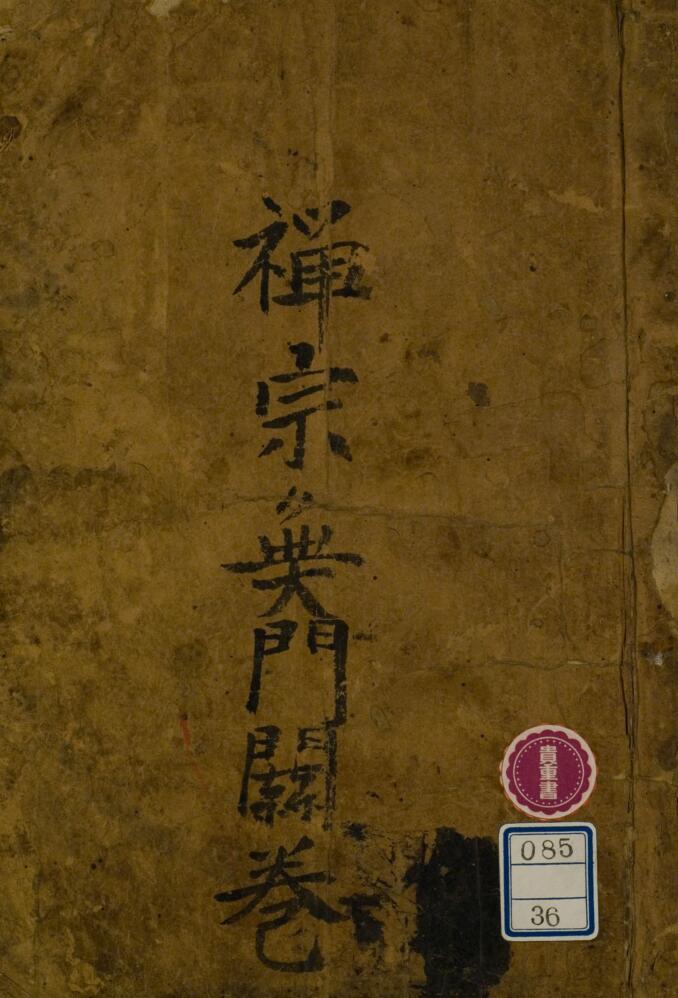 禪宗無門關卷
貴重書
085
36